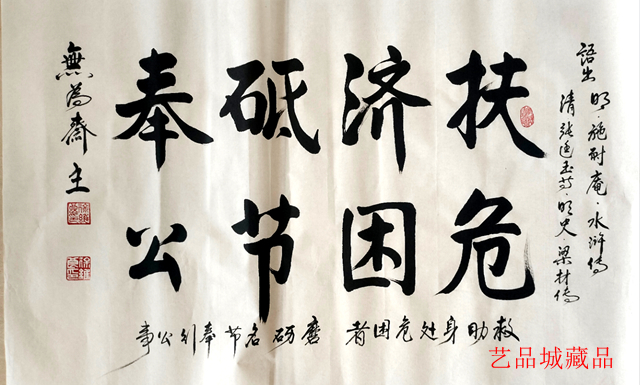 語出 明·施耐庵·水浒传
清 张廷玉等·明史·梁材传
扶危
济困
砥节
奉公
救助身处危困者 磨砺名节奉行公事
無為齋主
艺品城藏品